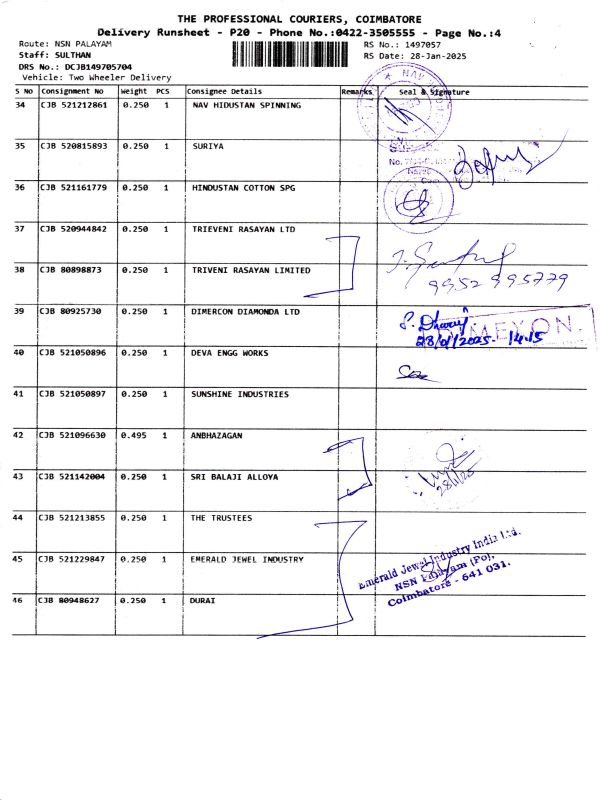 THE PROFESSIONAL COURIERS, COIMBATORE
Delivery Runsheet - P20 - Phone No.:0422-3505555 - Page No.:4
Route: NSN PALAYAM RS No.: 1497057
Staff: SULTHAN RS Date: 28-Jan-2025
DRS No.: DCJB149705704
Vehicle: Two Wheeler Delivery
S No Consignment No Weight PCS Consignee Details Remarks Seal & Signature
34 CJB 521212861 0.250 1 NAV HIDUSTAN SPINNING
35 CJB 520815893 0.250 1 SURIYA
36 CJB 521161779 0.250 1 HINDUSTAN COTTON SPG
37 CJB 520944842 0.250 1 TRIEVENI RASAYAN LTD
38 CJB 80898873 0.250 1 TRIVENI RASAYAN LIMITED
9952995779
39 CJB 80925730 0.250 1 DIMERCON DIAMONDA LTD
28/01/2025- 14.15
40 CJB 521050896 0.250 1 DEVA ENGG WORKS
41 CJB 521050897 0.250 1 SUNSHINE INDUSTRIES
42 CJB 521096630 0.495 1 ANBHAZAGAN
43 CJB 521142004 0.250 1 SRI BALAJI ALLOYA
28/1/25
44 CJB 521213855 0.250 1 THE TRUSTEES
45 CJB 521229847 0.250 1 EMERALD JEWEL INDUSTRY
Emerald Jewel Industry India Ltd.
NSN Palayam (Po),
Coimbatore - 641 031.
46 CJB 80948627 0.250 1 DURAI